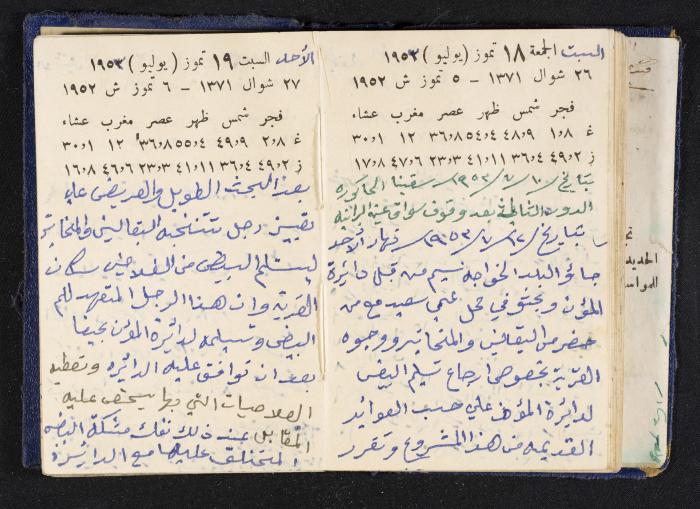 السبت الجمعة ١٨ تموز (يوليو) ١٩٥٣
٢٦ شوال ١٣٧١ - ٥ تموز ش ١٩٥٢
فجر شمس ظهر عصر مغرب عشاء
غ ١و٨ ٩و٤٨ ٤و٥٤ ٨و٣٦ ١٢ ١و٣٠
ز ٢و٤٩ ٤و٣٦ ١١و٤١ ٣و٢٣ ٦و٤٧ ٨و١٧
بتاريخ ١٠/٧/١٩٥٣ سقينا الحاكوره
الدوره الثانية بعد وقوف سواقي عين البرانيه
بتاريخ ١٢/٧/١٩٥٣ نهار الأحد
جائع البلد الخواجه نسيم من قبل دائرة
المؤن وبحثو في محل عمي سعيد مع من
حضر من البقالين والمخاتير ووجوه
القرية بخصوص ارجاع تسليم البيض
لدائرة المؤن على حسب العوائد
القديمه من هذا المشروع وتقرر
الأحد السبت ١٩ تموز (يوليو) ١٩٥٣
٢٧ شوال ١٣٧١ - ٦ تموز ش ١٩٥٢
فجر شمس ظهر عصر مغرب عشاء
غ ٨و٢ ٩و٤٩ ٤و٥٥ ٨و٣٦ ١٢ ١و٣٠
ز ٢و٤٩ ٤و٣٦ ١١و٤١ ٣و٢٣ ٦و٤٦ ٨و١٦
بعد البحث الطويل والعريض على
تعيين رجل تنتخبه البقالين والمخاتير
ليستلم البيض من الفلاحين سكان
القرية وان هذا الرجل المتعهد للم
البيض وتسليمه لدائرة المؤن بحيفا
بعد ان توافق عليه الدائره وتعطيه
الصلاحيات التي بها يستحق عليه
المقابل عند ذلك تفك مشكلة البيض
المختلف عليها مع الدائره
الحديد
للمواس